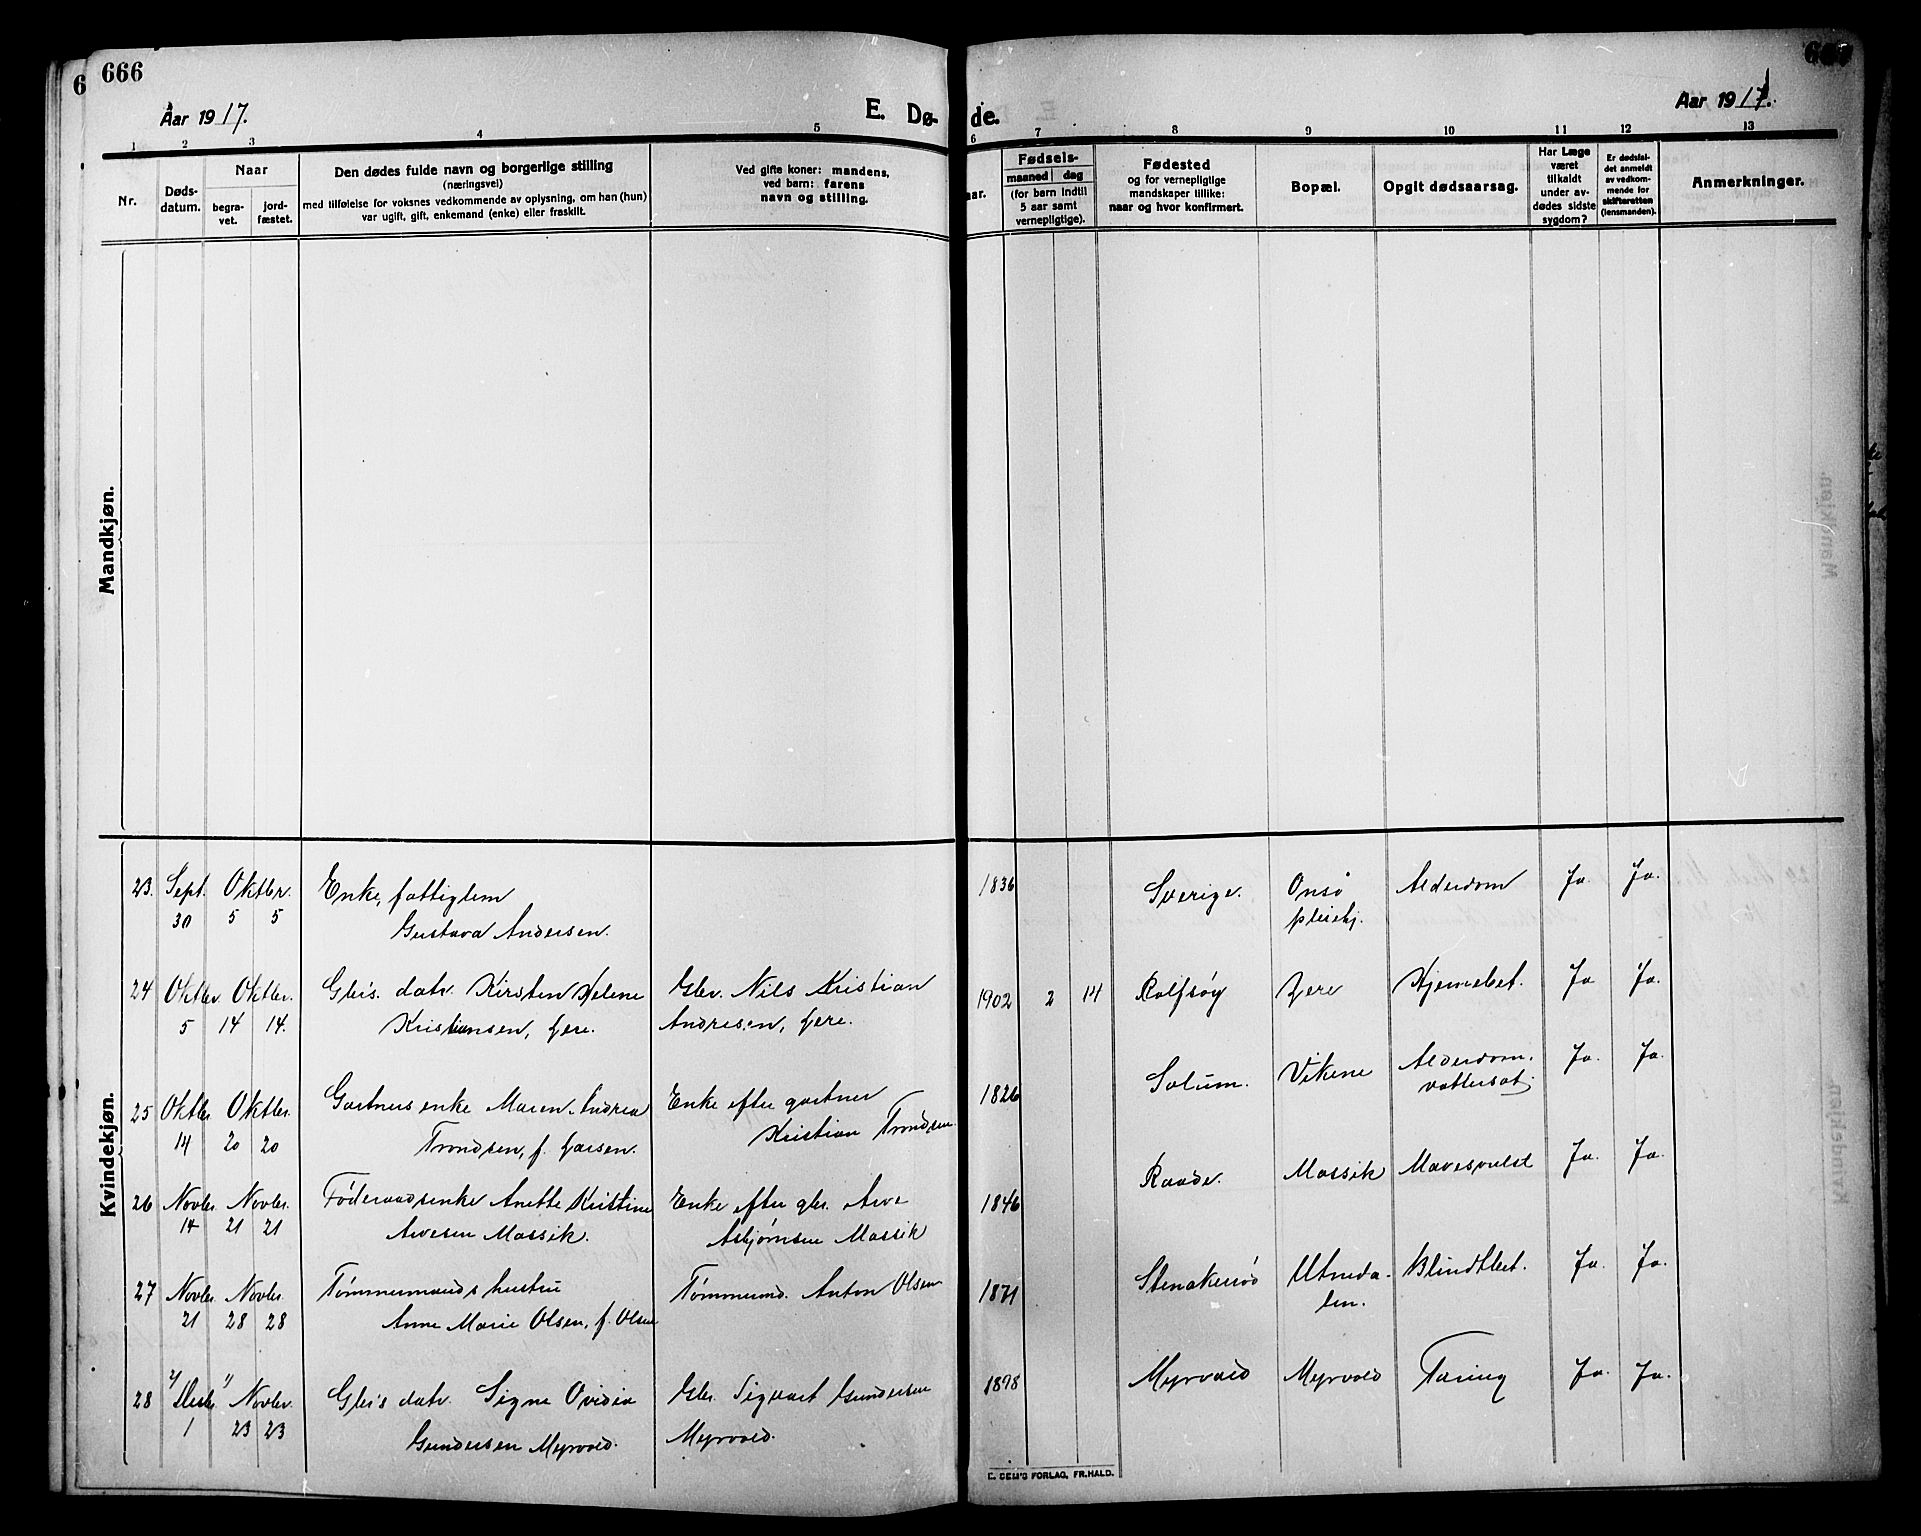 666
Aar 1917.
E. Dø-
de.
Aar 1917.
1 2 3 4 5 6 7 8 9 10 11 12 13
Nr.
Døds-
datum.
Naar
begra-
vet.
jord-
fæstet.
Den dødes fulde navn og borgerlige stilling
(næringsvei)
med tilføielse for voksnes vedkommende av oplysning, om han (hun)
var ugift, gift, enkemand (enke) eller fraskilt.
Ved gifte koner: mandens,
ved barn: farens
navn og stilling.
aar.
Fødsels-
maaned dag
(for barn indtil
5 aar samt
vernepligtige).
Fødested
og for vernepligtige
mandskaper tillike:
naar og hvor konfirmert.
Bopæl.
Opgit dødsaarsag.
Har Læge
været
tilkaldt
under av-
dødes sidste
sygdom?
Er dødsfal-
det anmeldt
av vedkom-
mende for
skifteretten
(lensmanden).
Anmerkninger.
Mandkjøn.
Kvindekjøn.
23. Sept. Oktbr. Enke, fattiglem 1836 Sverige. Onsø Alderdom Ja. Ja.
30 5 5 Gustava Andersen. pleiehj.
24 Oktbr. Oktbr. Gbr's. datr. Kirsten Helene Gbr. Nils Kristian 1902 2 14 Rolfsøy Lere Hjernebet. Ja Ja.
5 14 14. Kristiansen, Lere. Andresen, Lere.
25 Oktbr. Oktbr. Gartnersenke Maren Andrea Enke efter gartner 1826 Solum. Vikene Alderdom. Ja. Ja.
14 20 20 Trondsen, f. Larsen. Kristian Trondsen
26 Novbr. Novbr. Føderaadsenke Anette Kristine Enke efter gbr. Arve 1846 Raade. Mossik Mavesvulst Ja. Ja.
14 21 21 Arvesen Mossik. Asbjørnsen Mossik
27 Novbr. Novbr. Tømmermands hustru Tømmermd. Anton Olsen 1871 Utneda- Blindtbet. Ja. Ja.
21 28 28 Anne Marie Olsen, f. Olsen len.
28 Novbr. Gbr's datr. Signe Ovidia Gbr. Sigvart Gundersen 1898 Myrvold Myrvold Tæring Ja. Ja.
1 23 23 Gundersen Myrvold. Myrvold.
E. SEM'S FORLAG, FR.HALD.